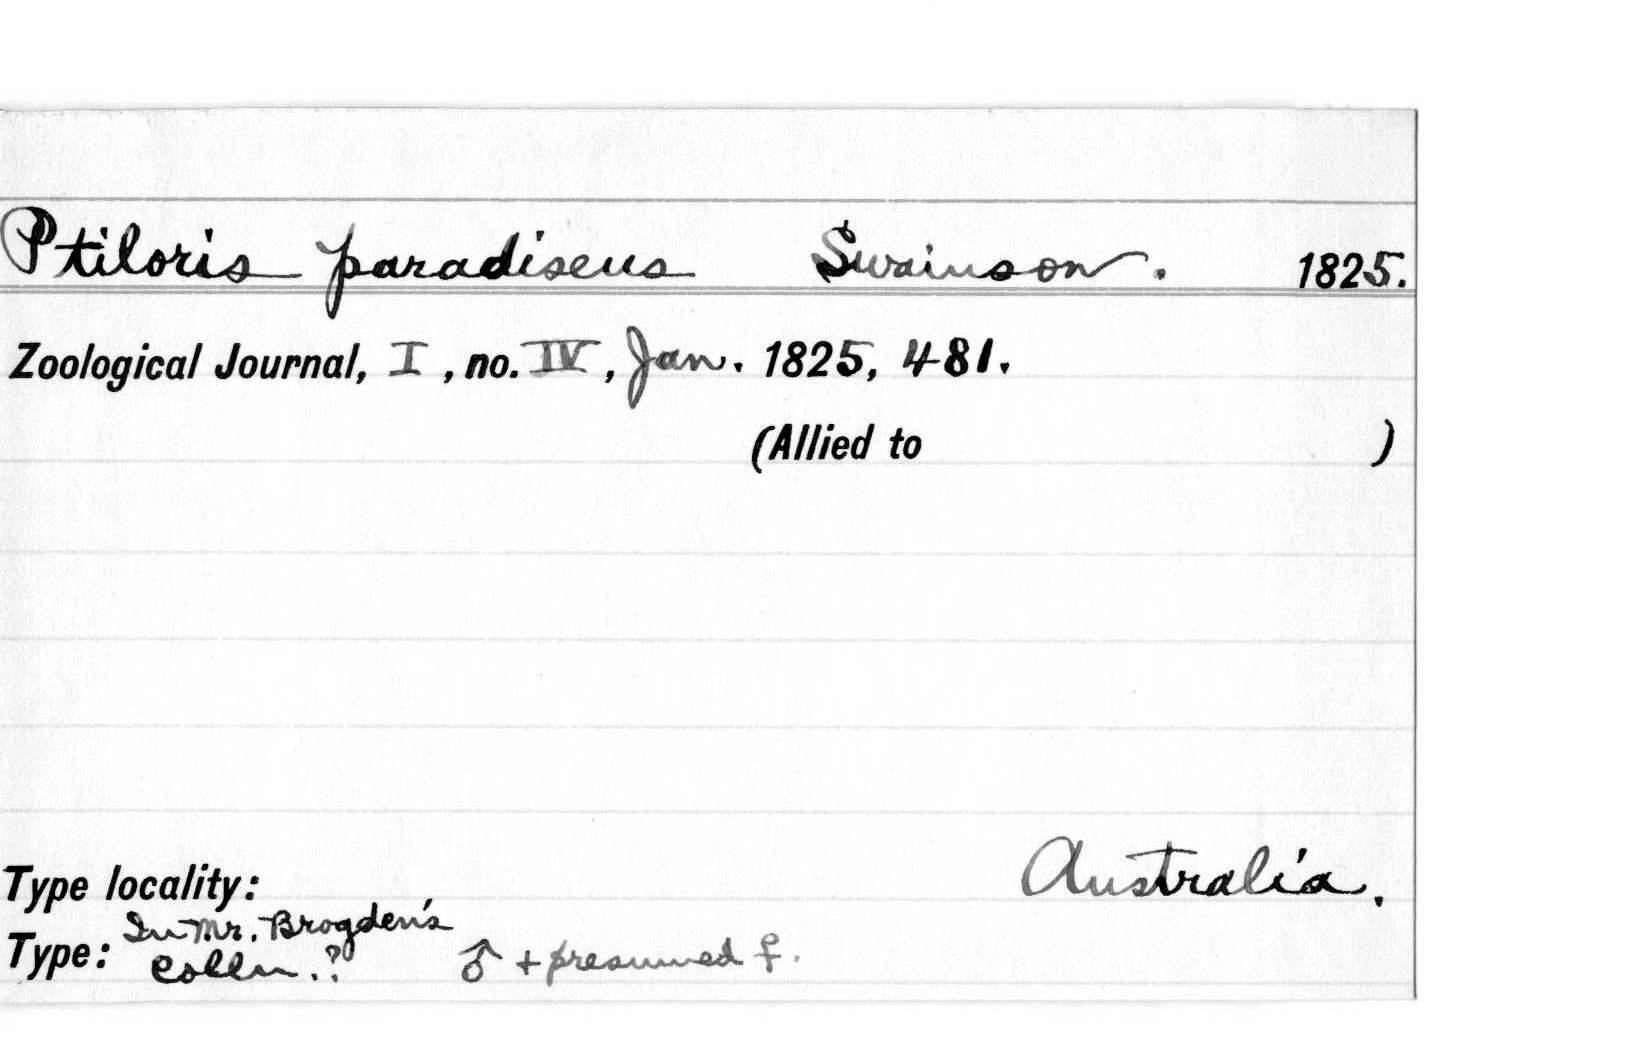 Ptiloris paradiseus Swainson. 1825.
Zoological Journal, I, no. IV, Jan. 1825, 481.
(Allied to )
Type locality: Australia.
In Mr. Brogden's
Type: Colln.? ♂ + presumed ♀.